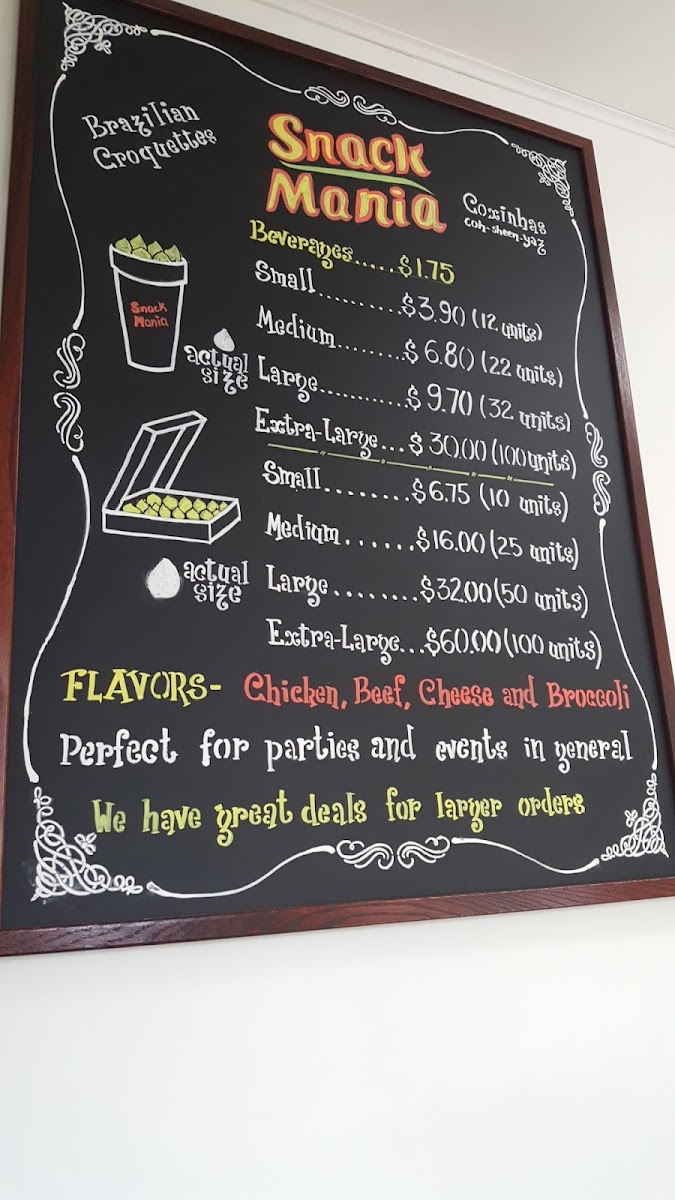 Brazilian
Croquettes
Snack
Mania
Coxinhas
coh-sheen-yaz
Beverages.....$1.75
Small..........$3.90 (12 units)
Medium........$6.80 (22 units)
Large...........$9.70 (32 units)
Extra-Large...$30.00 (100 units)
Snack
Mania
actual
size
Small........$6.75 (10 units)
Medium......$16.00 (25 units)
Large........$32.00 (50 units)
Extra-Large...$60.00 (100 units)
actual
size
FLAVORS- Chicken, Beef, Cheese and Broccoli
Perfect for parties and events in general
We have great deals for larger orders